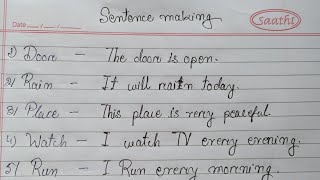 Sentence making
Saathi
Date ..... / ..... / .....
1) Door — The door is open.
2) Rain — It will rain today.
3) Place — This place is very peaceful.
4) Watch — I watch TV every evening.
5) Run — I Run every morning.